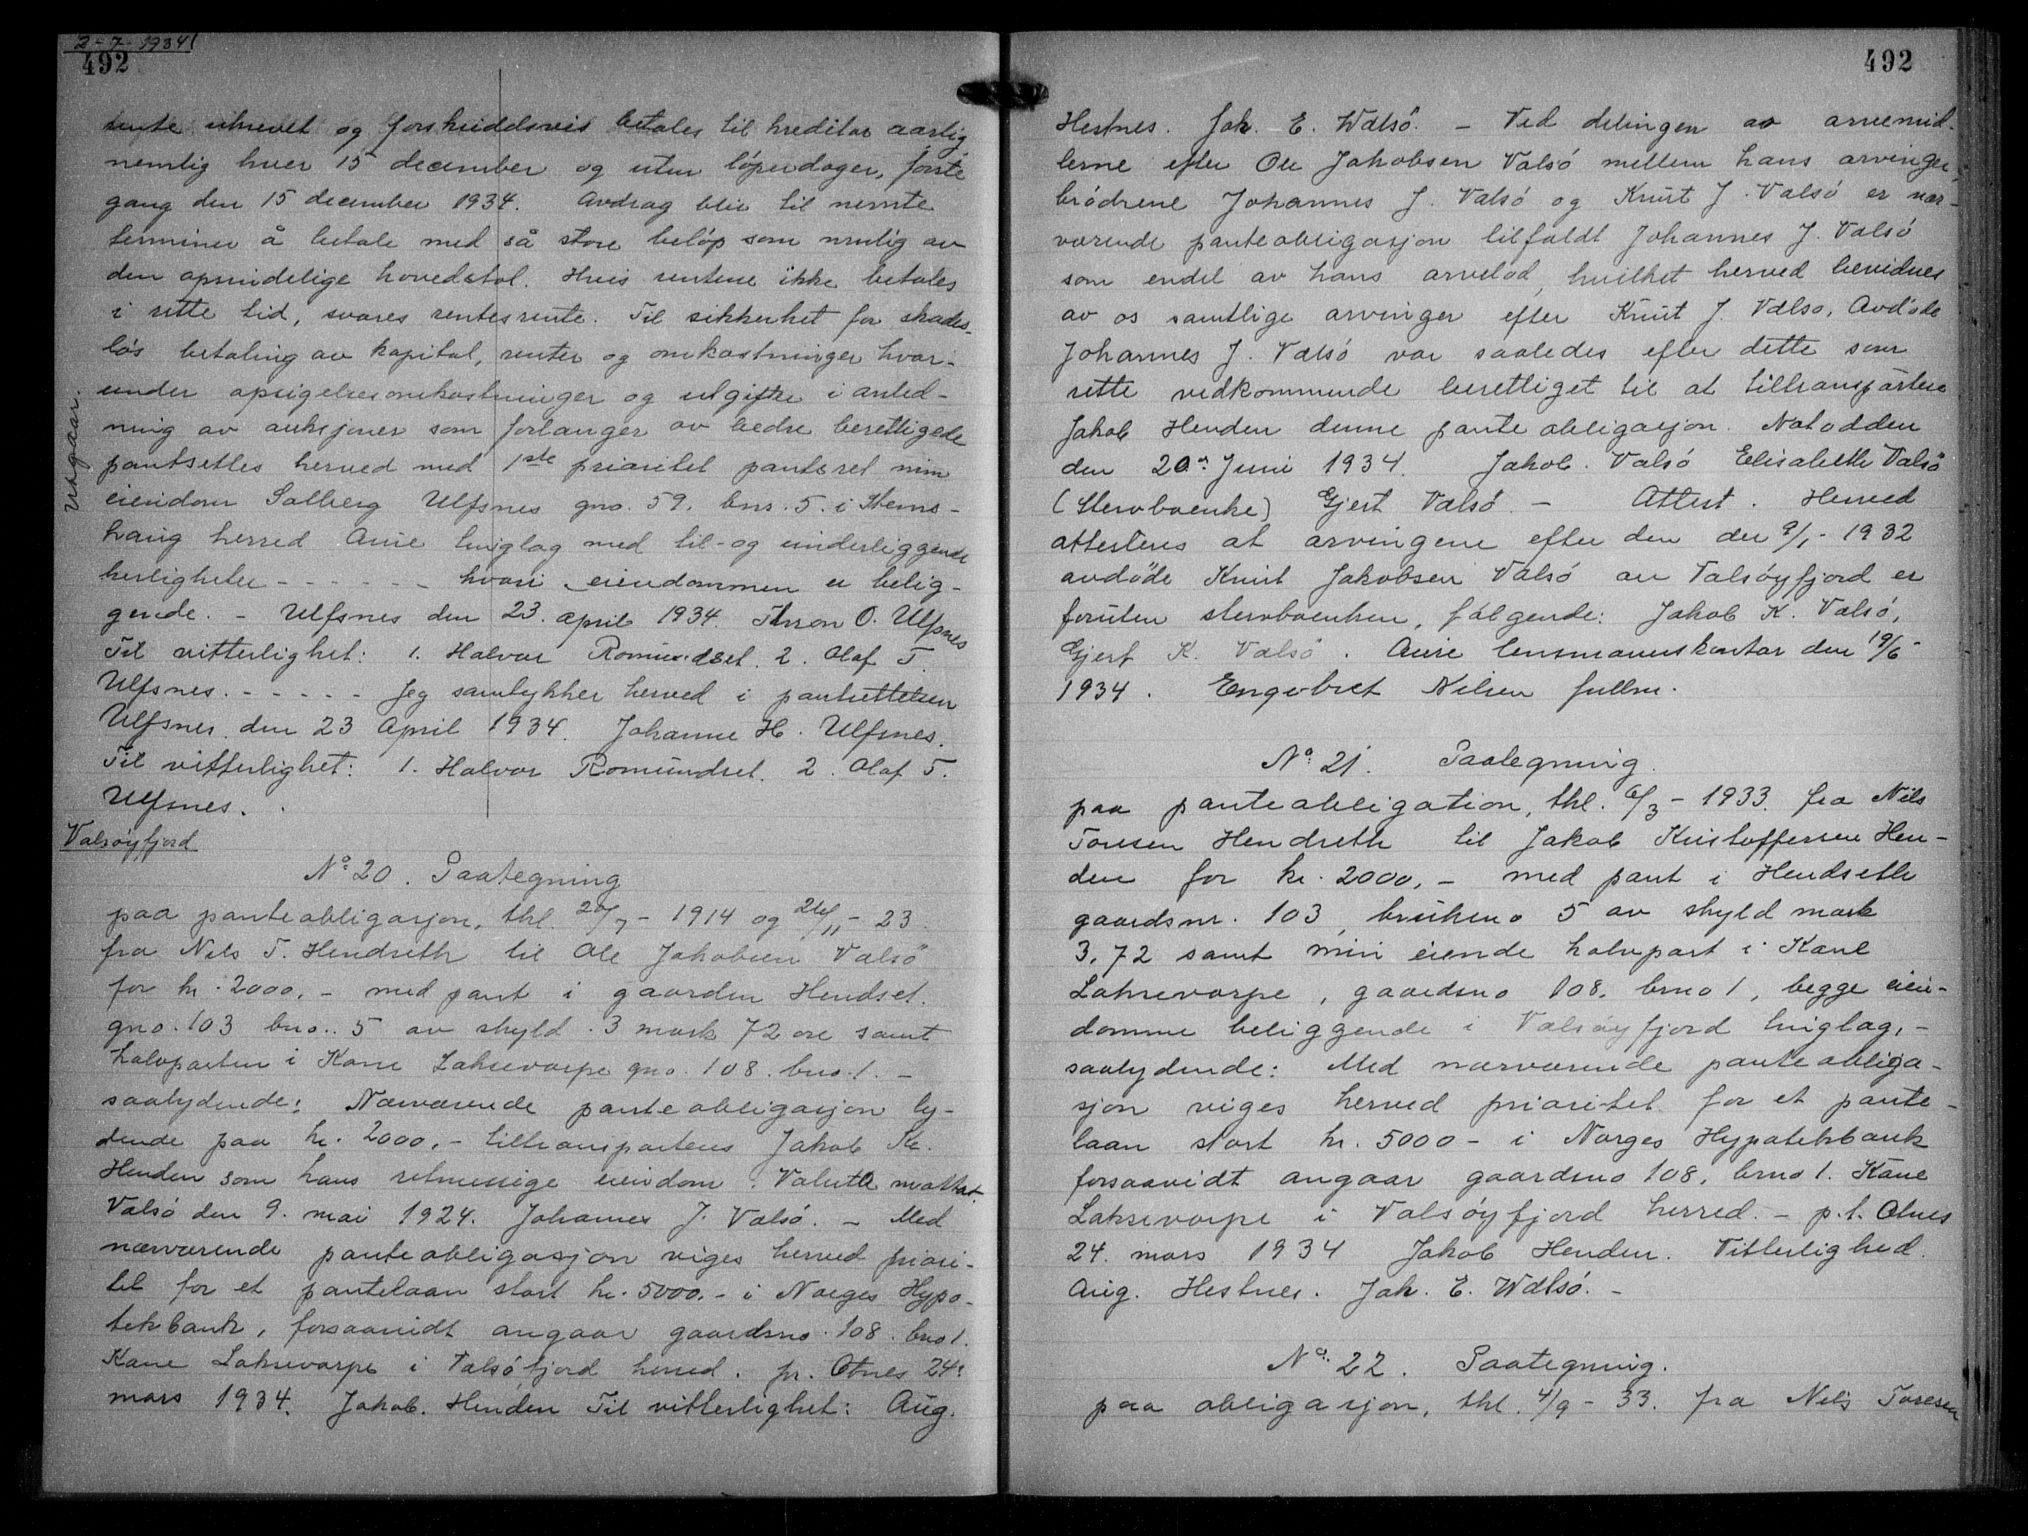 2-7-1934
492
rente ukrevet og forskuddsvis betales til kreditor aarlig
nemlig hver 15 december og uten löpedager, förste
gang den 15 december 1934. Avdrag blir til nevnte
terminer å betale med så store belöp som mulig av
den oprindelige hovedstol. Hvis rentene ikke betales
i rette tid, svares rentesrente. Til sikkerhet for skades-
lös betaling av kapital, renter og omkostninger hvor-
under opsigelsesomkostninger og utgifter i anled-
ning av auksjoner som forlanges av bedre berettigede
pantsettes herved med 1ste prioritet panteret min
eiendom Solberg Ulfsnes gno. 59. bns. 5. i Stems-
haug herred Aure tinglag med til- og underliggende
herligheter - - - - - - hvori eiendommen er belig-
gende. - Ulfsnes den 23. april 1934. Thron O. Ulfsnes
Til vitterlighet: 1. Halvor Romundset. 2. Olaf T.
Ulfsnes. - - - - - Jeg samtykker herved i pantsettelsen
Ulfsnes. den 23 April 1934. Johanne H. Ulfsnes.
Til vitterlighet: 1. Halvor Romundset. 2. Olaf T.
Ulfsnes.
Utgaar.
Valsöyfjord
No 20. Paategning
paa panteobligasjon, thl. 20/7 - 1914 og 26/11 - 23.
fra Nils T. Hendseth til Ole Jakobsen Valsö
for kr. 2000.- med pant i gaarden Hendset.
gno. 103 bno. 5 av skyld. 3 mark 72 ore samt
halvparten i Kane Laksevarpe gno. 108. bno. 1. -
saalydende: Nærværende panteobligasjon ly-
dende paa kr. 2000.- tiltransporteres Jakob Kr.
Henden som hans retmessige eiendom. Valuta mottat.
Valsö den 9. mai 1924. Johannes J. Valsö. - Med
nærværende panteobligasjon viges herved priori-
tet for et pantelaan stort kr. 5000.- i Norges Hypo-
tekbank, forsaavidt angaar gaardsno. 108. bno 1.
Kane Laksevarpe i Valsöfjord herred. pr. Otnes 24.
mars 1934. Jakob. Henden Til vitterlighet: Aug.
492
Hestnes. Joh. E. Walsö. - Ved delingen av arvemid-
lerne efter Ole Jakobsen Valsö mellem hans arvinger,
brödrene Johannes J. Valsö og Knut J. Valsö er nær-
værende panteobligasjon tilfaldt Johannes J. Valsö
som endel av hans arvelod, hvilket herved bevidnes
av os samtlige arvinger efter Knut J. Valso, Avdöde
Johannes J. Valsö var saaledes efter dette som
rette vedkommende berettiget til at tiltransportere
Jakob Henden denne panteobligasjon. Notodden
den 20. Juni 1934. Jakob. Valsö Elisabeth Valsö
(Stervboenke) Gjert Valsö. - Attest. Herved
attesteres at arvingene efter den den 9/1 - 1932
avdöde Knut Jakobsen Valsö av Valsöyfjord er
foruten stervboenken, fölgende: Jakob K. Valsö,
Gjert K. Valsö. Aure lensmannskontor den 19/6 -
1934. Engebret Nilsen fullm.
No 21. Paategning.
paa panteobligation, thl. 6/3 - 1933. fra Nils
Toresen Hendseth til Jakob Kristoffersen Hen-
den for kr. 2000.- med pant i Hendseth
gaardsnr. 103, bruksno 5 av skyld mark
3.72 samt min eiende halvpart i Kane
Laksevarpe, gaardsno 108, brno 1, begge eien-
domme beliggende i Valsöyfjord tinglag, -
saalydende: Med nærværende panteobliga-
sjon viges herved prioritet for et pante-
laan stort kr. 5000 - i Norges Hypotekbank
forsaavidt angaar gaardsno 108, brno 1. Kane
Laksevarpe i Valsöyfjord herred. - p.t. Otnes
24. mars 1934 Jakob Henden. Vitterlighed.
Aug. Hestnes. Joh. E. Walsö. -
No 22. Paategning.
paa obligasjon, thl. 4/9 - 33. fra Nils Toresen